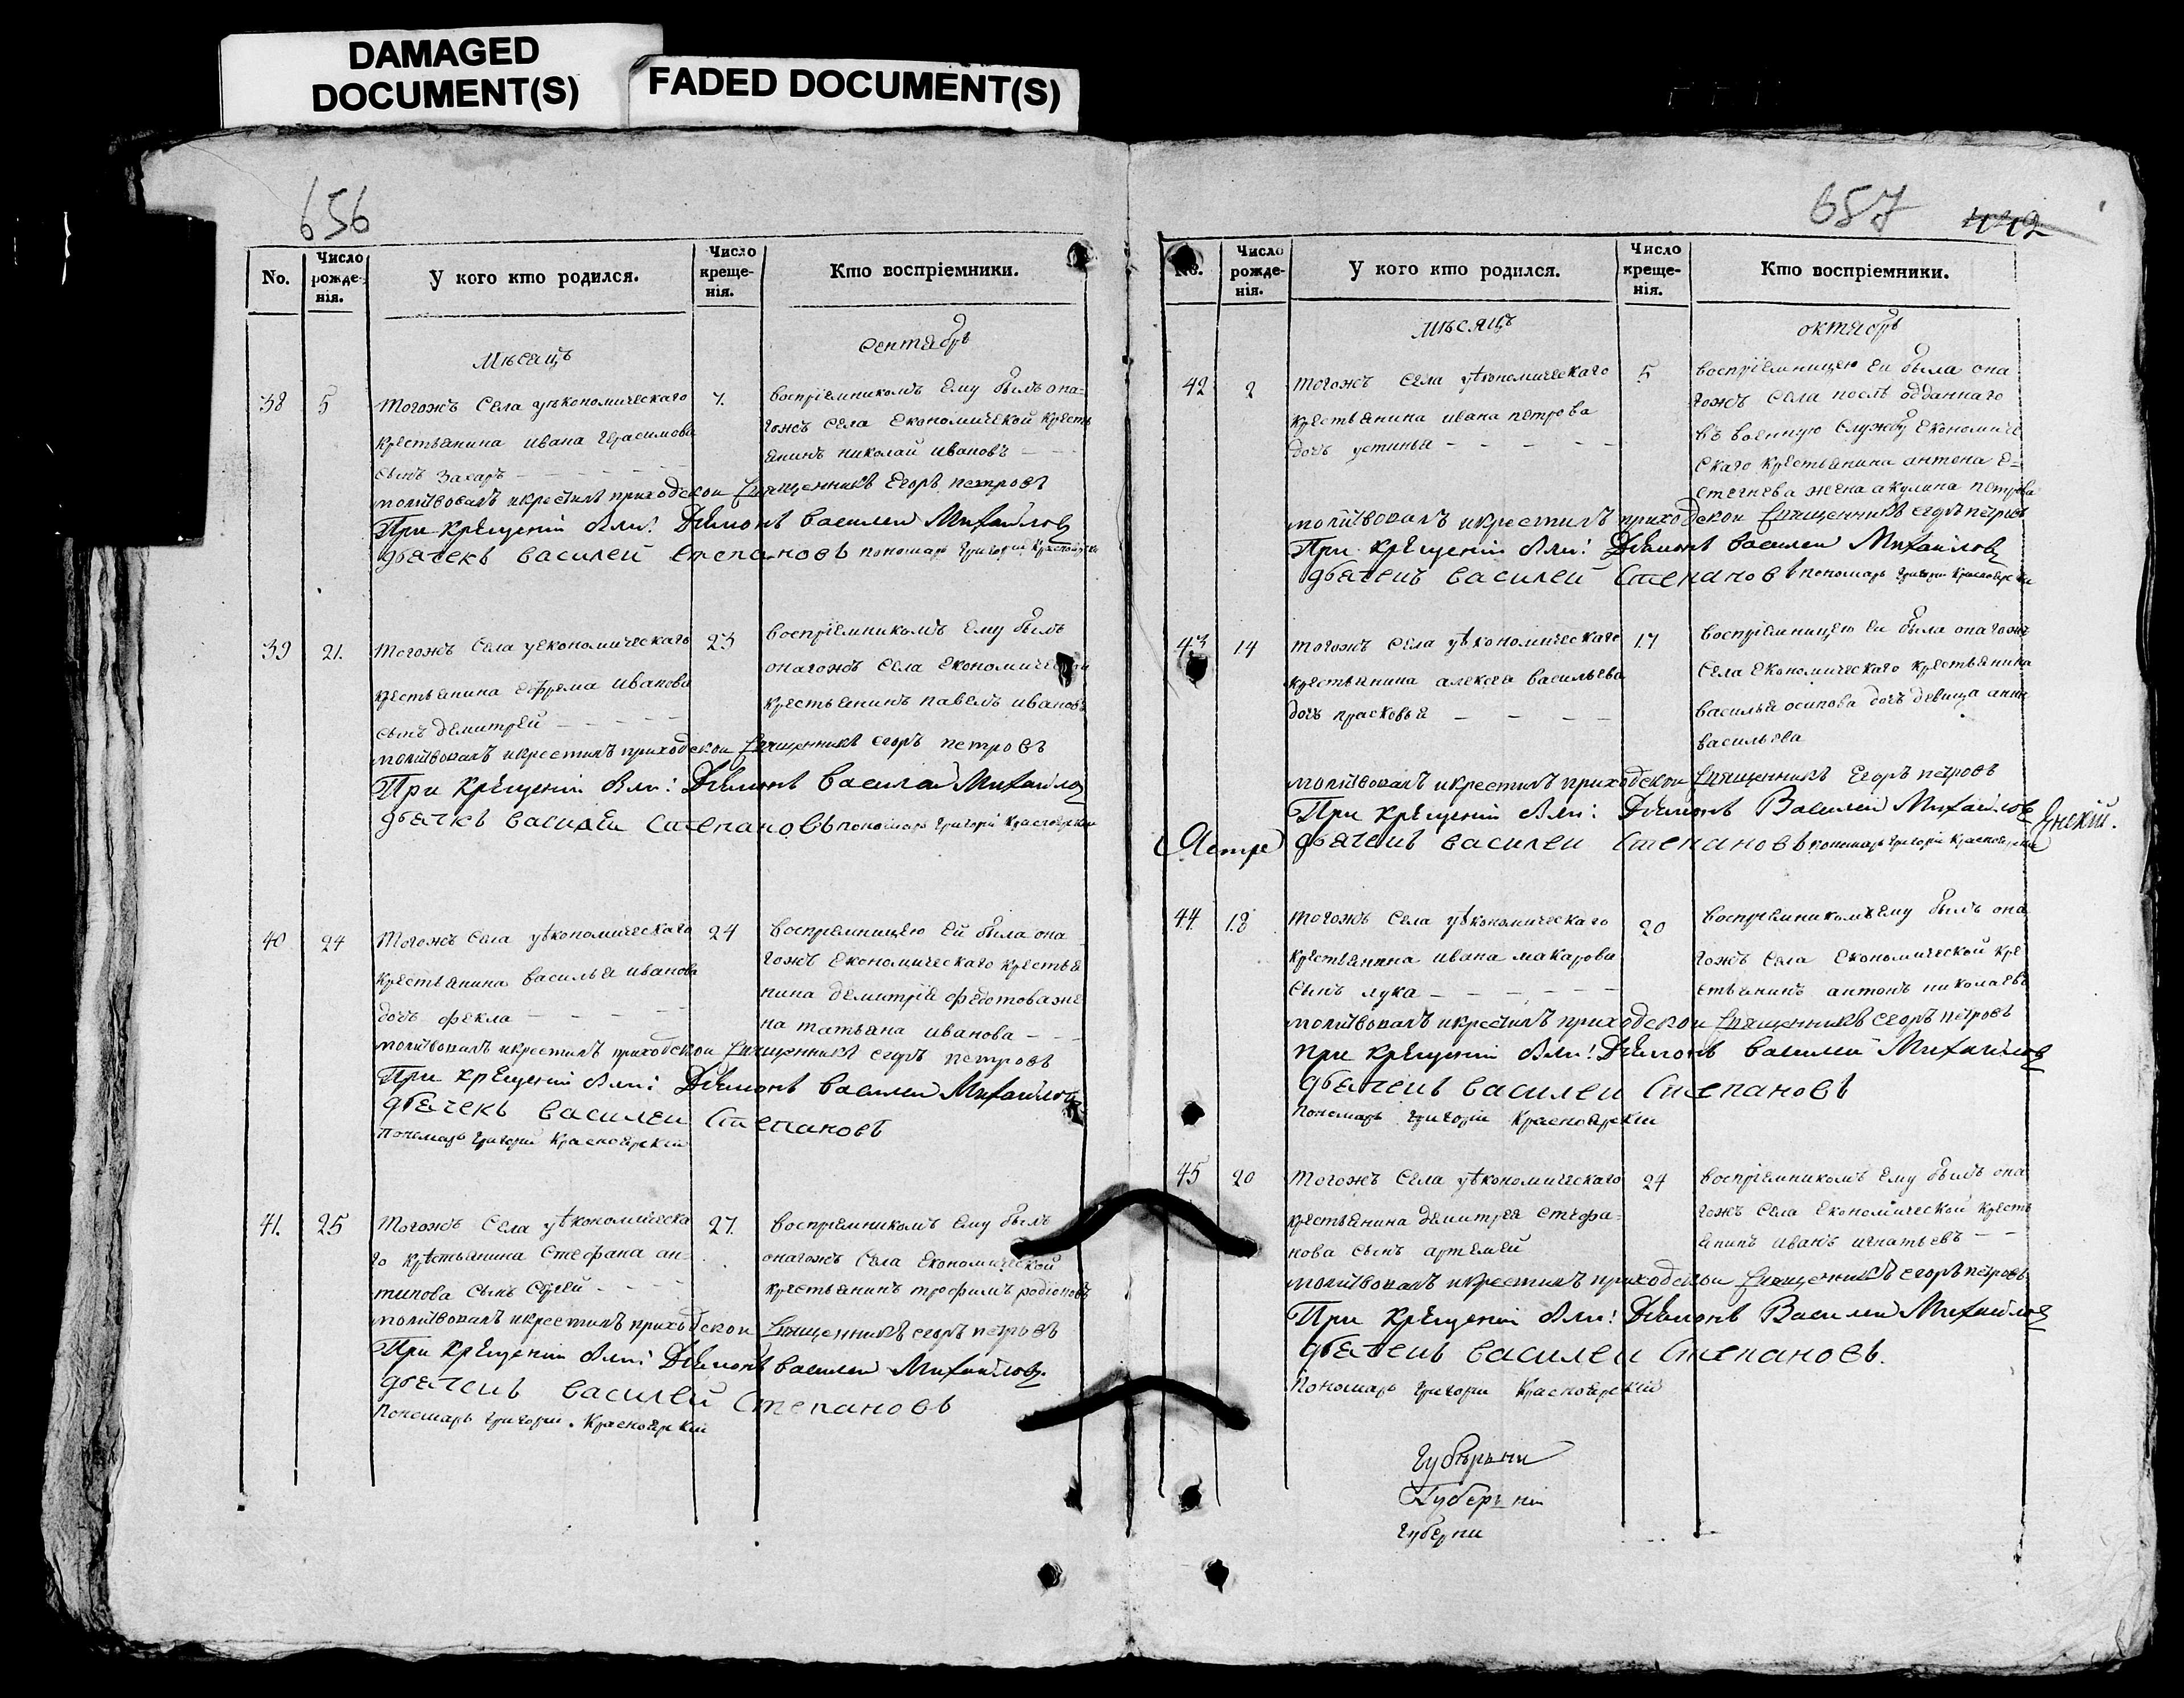 DAMAGED
DOCUMENT(S)
FADED DOCUMENT(S)
656
No.
Число рожденія.
У кого кто родился.
Число крещенія.
Кто воспріемники.
Мѣсяцъ
Сентябрь
38
5
Тогожъ Села уѣкономическаго
крестьянина ивана герасимова
сынъ Захаръ
7.
воспріемникомъ Ему былъ она=
гожъ Села Економической кресть
янинъ николай ивановъ
молитвовалъ икрестилъ приходской Священникъ Егоръ петровъ
При крещеніи были: Дьяконъ василей Михайловъ
дьячекъ василей степановъ пономарь григорій Красноярскій
39
21.
Тогожъ Села уекономическаго
крестьянина ефрема иванова
сынъ демитрей
23
воспріемникомъ Ему былъ
онагожъ Села Економической
крестьянинъ павелъ ивановъ
молитвовалъ икрестилъ приходской Священникъ егоръ петровъ
При крещеніи были: Дьяконъ василей Михайловъ
дьячкъ василей степановъ пономарь григорій Красноярскій
40
24
Тогожъ Села уѣкономическаго
крестьянина василья иванова
дочь фекла
24
воспріемницею Ей была она
гожъ Економическаго крестья
нина демитрія федотова же
на татьяна иванова
молитвовалъ икрестилъ приходской Священникъ егоръ петровъ
При крещеніи были: Дьяконъ василей Михайловъ
дьячекъ василей степановъ
пономарь григорій Красноярскій
41.
25
Тогожъ Села уѣкономическа
го крѣстьянина Стефана ан=
типова сынъ Сергей
27.
воспріемникомъ Ему былъ
онагожъ Села Економической
крестьянинъ трофимъ родіоновъ
молитвовалъ икрестилъ приходской Священникъ егоръ петровъ
При крещеніи были: Дьяконъ василей Михайловъ.
дьячекъ василей Степановъ
пономарь григорій. Красноярскій
687
442
No.
Число рожденія.
У кого кто родился.
Число крещенія.
Кто воспріемники.
мѣсяцъ
октябрь
42
2
тогожъ села уѣкономическаго
крестьянина ивана петрова
дочь устинья
5
воспріемницею Ей была она
гожъ Села послѣ отданнаго
въ военную Службу Економиче
Скаго крестьянина антона е=
жена акулина петрова
молитвовалъ икрестилъ приходской Священникъ егоръ петровъ
При крещеніи были: Дьяконъ василей Михайловъ
дьячекъ василей Степановъ пономарь григорій Красноярскій
43
14
тогожъ Села уѣкономическаго
крестьянина алексея васильева
дочь прасковья
17
воспріемницею Ей была онагожъ
Села Економическаго крестьянина
василья осипова дочь девица анна
васильева
молитвовалъ икрестилъ приходской Священникъ Егоръ петровъ
При крещеніи были: Дьяконъ Василей Михайловъ
дьячекъ василей Степановъ пономарь григорій Красноярскій
44
18
тогожъ Села уѣкономическаго
крестьянина ивана макарова
сынъ лука
20
воспріемникомъ Ему былъ она
гожъ Села Економической кре
стьянинъ антонъ николаевъ
молитвовалъ икрестилъ приходской Священникъ егоръ петровъ
При крещеніи были: Дьяконъ василей Михайловъ
дьячекъ василей Степановъ
пономарь григорій Красноярскій
45
20
тогожъ Села уѣкономическаго
крестьянина демитрея стефа=
нова сынъ артемей
24
воспріемникомъ Ему былъ она
гожъ Села Економической кресть
янинъ иванъ игнатьевъ
молитвовалъ икрестилъ приходской Священникъ егоръ петровъ
При крещеніи были: Дьяконъ Василей Михайловъ
дьячекъ василей Степановъ.
Пономарь григорій Красноярскій
Губерьни
Губерьніи
губерни